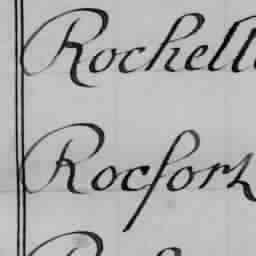 Rochelle
Rocfort